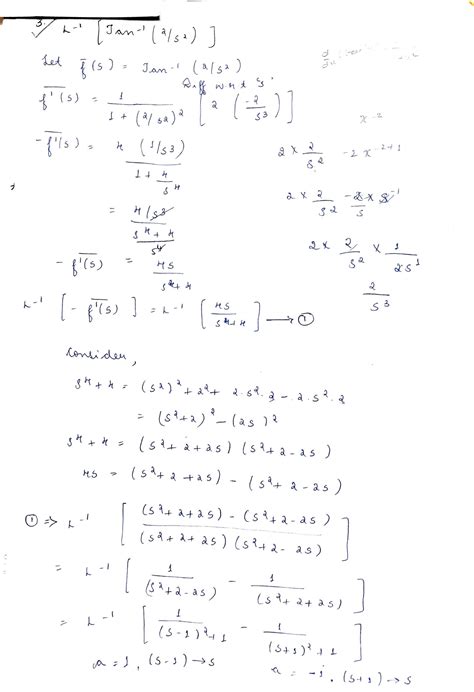 3. L⁻¹ [Tan⁻¹ (2/s²)]
Let f̄(s) = Tan⁻¹ (2/s²)
Diff w.r.t s.
f̄'(s) = 1 / (1 + (2/s²)²) [2 (-2/s³)]
-f̄'(s) = 4 (1/s³) / (1 + 4/s⁴)
= (4/s³) / ((s⁴ + 4)/s⁴)
-f̄'(s) = 4s / (s⁴ + 4)
L⁻¹ [-f̄'(s)] = L⁻¹ [4s / (s⁴+4)] → ①
x⁻²
2 × 2/s² -2x⁻²⁺¹
2 × 2/s²
2 × 2/s² × 1/2s¹
2/s³
Consider,
s⁴ + 4 = (s²)² + 2² + 2·s²·2 - 2·s²·2
= (s²+2)² - (2s)²
s⁴ + 4 = (s² + 2 + 2s) (s² + 2 - 2s)
4s = (s² + 2 + 2s) - (s² + 2 - 2s)
① => L⁻¹ [((s²+2+2s) - (s²+2-2s)) / ((s²+2+2s) (s²+2-2s))]
= L⁻¹ [1/(s²+2-2s) - 1/(s²+2+2s)]
= L⁻¹ [1/((s-1)²+1) - 1/((s+1)²+1)]
a = 1, (s-1) → s a = -1, (s+1) → s